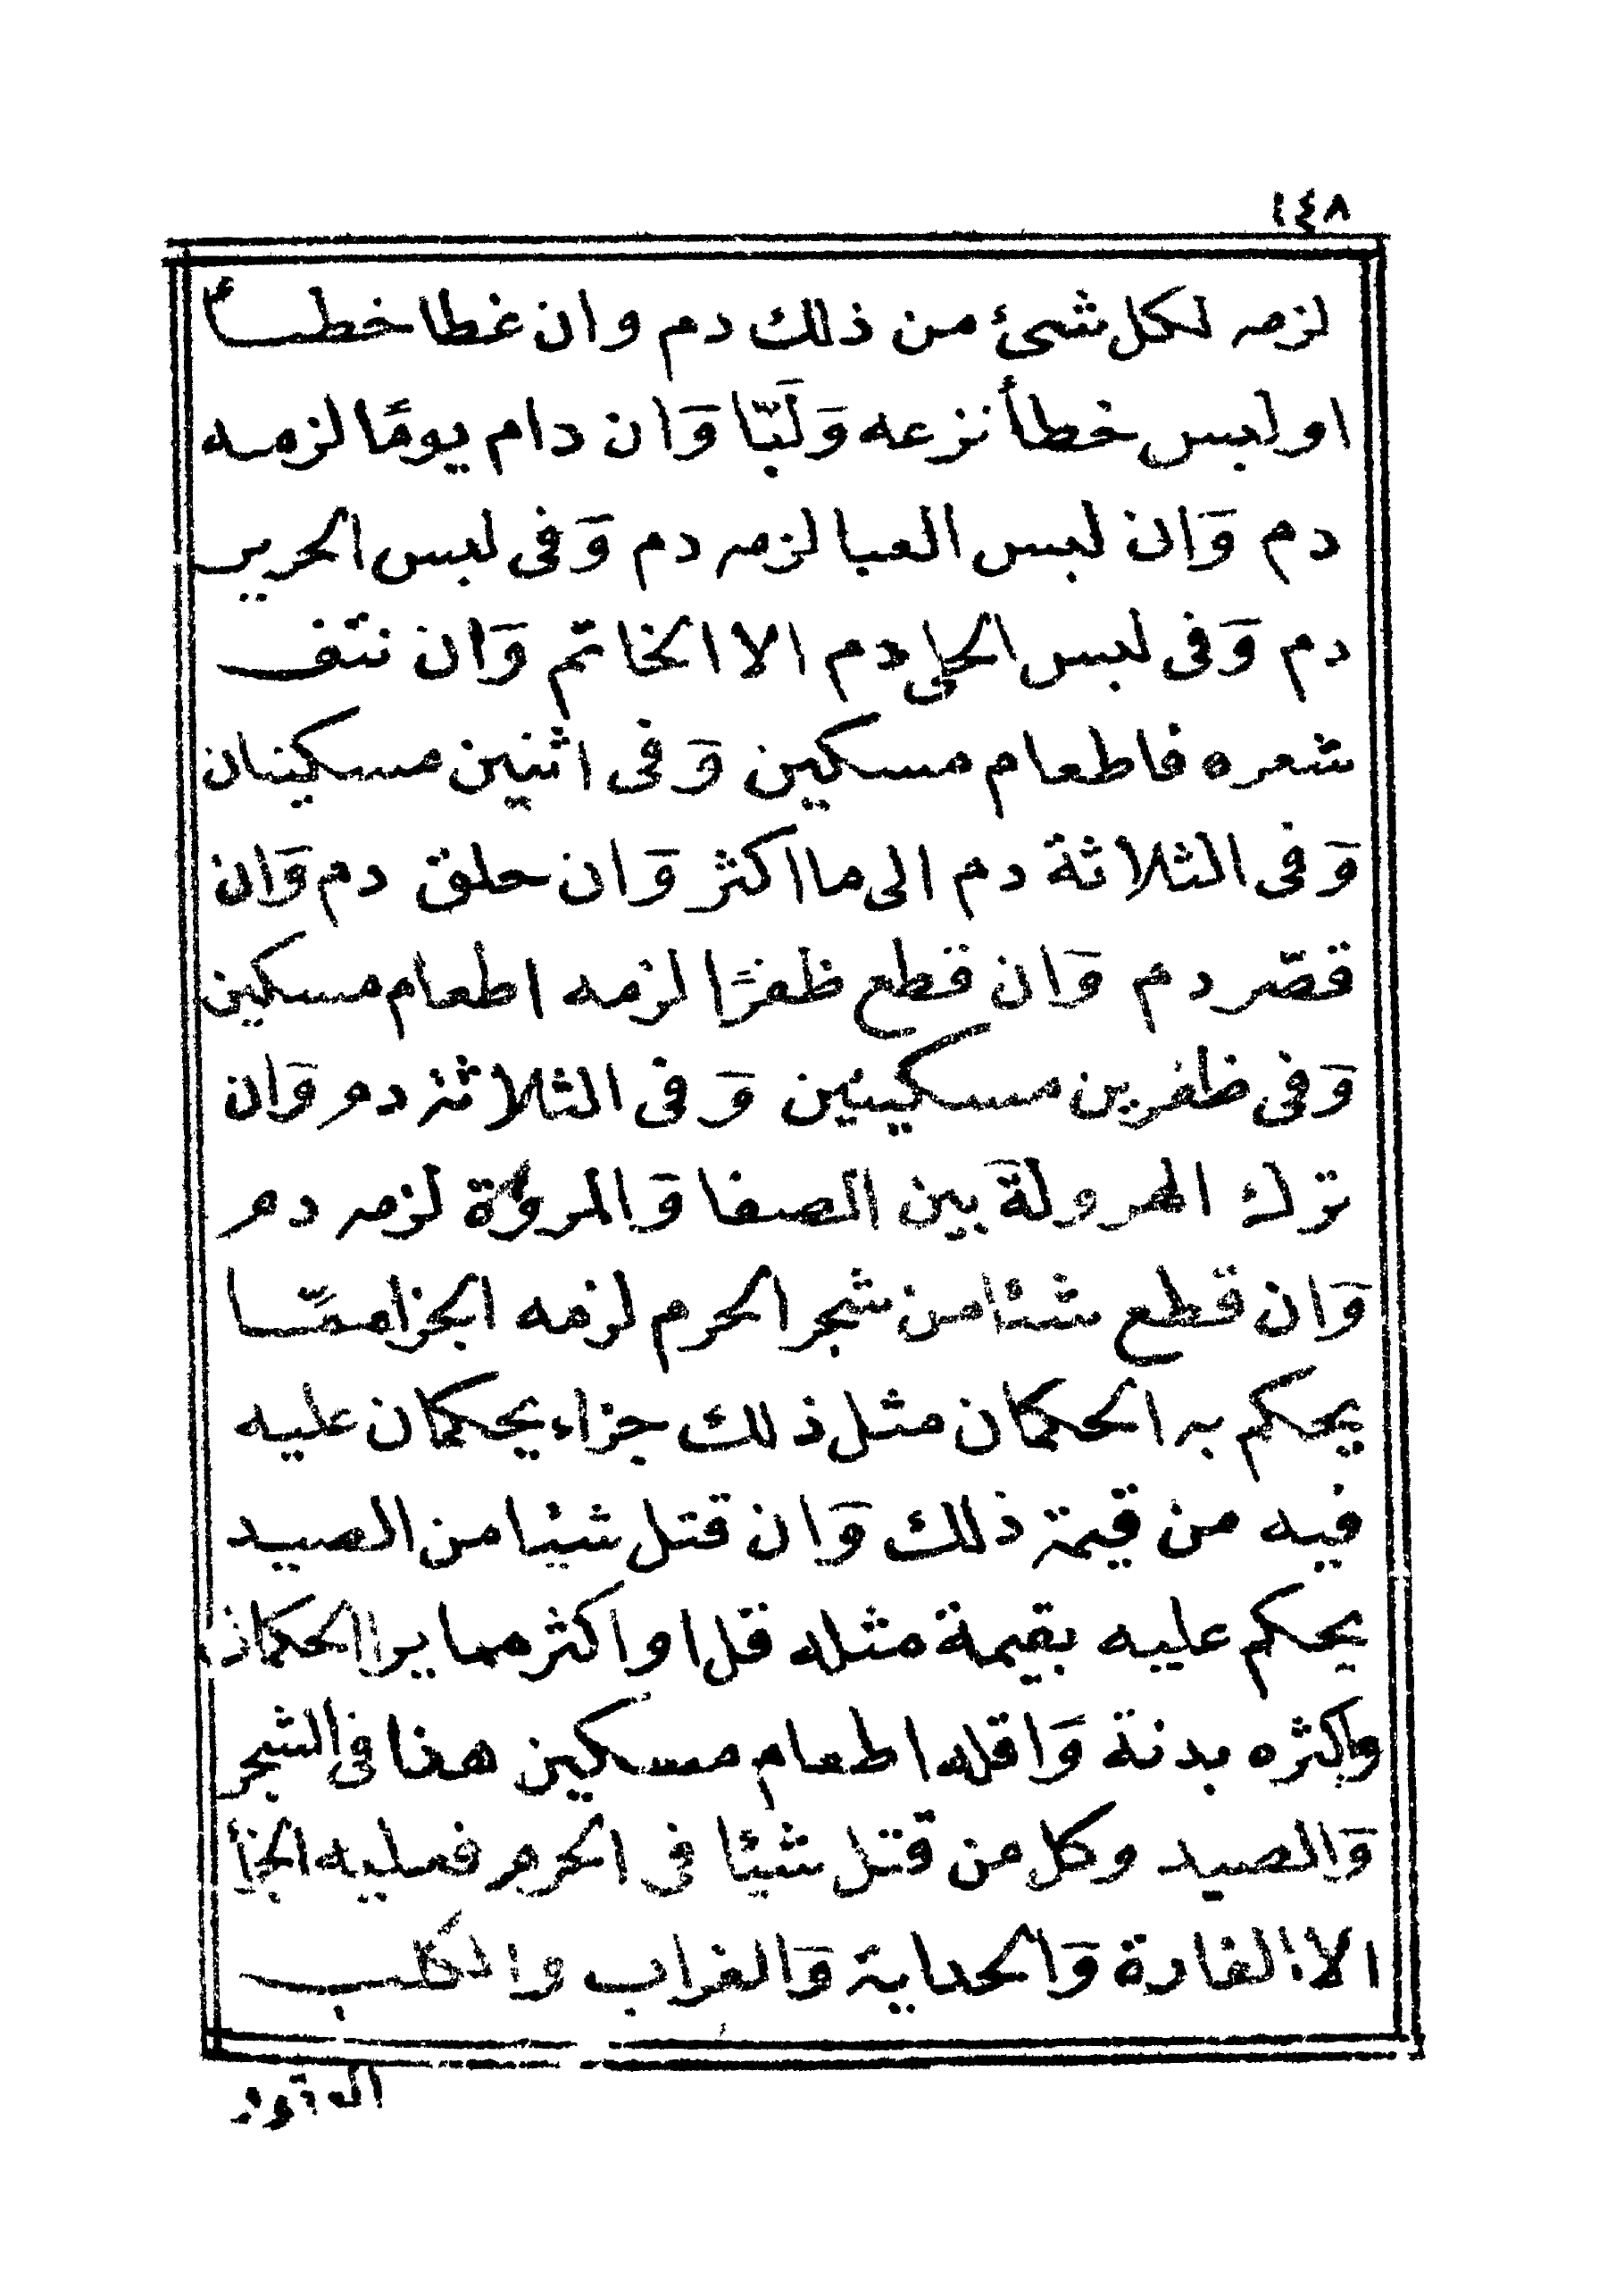 ١٤٨
لزمه لكل شئ من ذلك دم وان غطا خطأ
او لبس خطأ نزعه وَلَبّا وَان دام يومًا لزمه
دم وَان لبس العبا لزمه دم وَفى لبس الحرير
دم وَفى لبس الحلى دم الا الخاتم وَان نتف
شعره فاطعام مسكين وَفى اثنين مسكينان
وَفى الثلاثة دم الى ما اكثر وَان حلق دم وَان
قصّر دم وَان قطع ظفرًا لزمه اطعام مسكين
وَفى ظفرين مسكينين وَفى الثلاثة دم وَان
ترك الهرولة بين الصفا وَالمروة لزمه دم
وَان قطع شئا من شجر الحرم لزمه الجزا ممّا
يحكم به الحكمان مثل ذلك جزاء يحكمان عليه
فيه من قيمة ذلك وَان قتل شيئا من الصيد
يحكم عليه بقيمة مثله قل او اكثر مما يرا الحكمان
واكثره بدنة وَاقله اطعام مسكين هذا فى الشجر
وَالصيد وكل من قتل شيئا فى الحرم فعليه الجزأ
الا الفارة وَالحداية وَالغراب والكلب